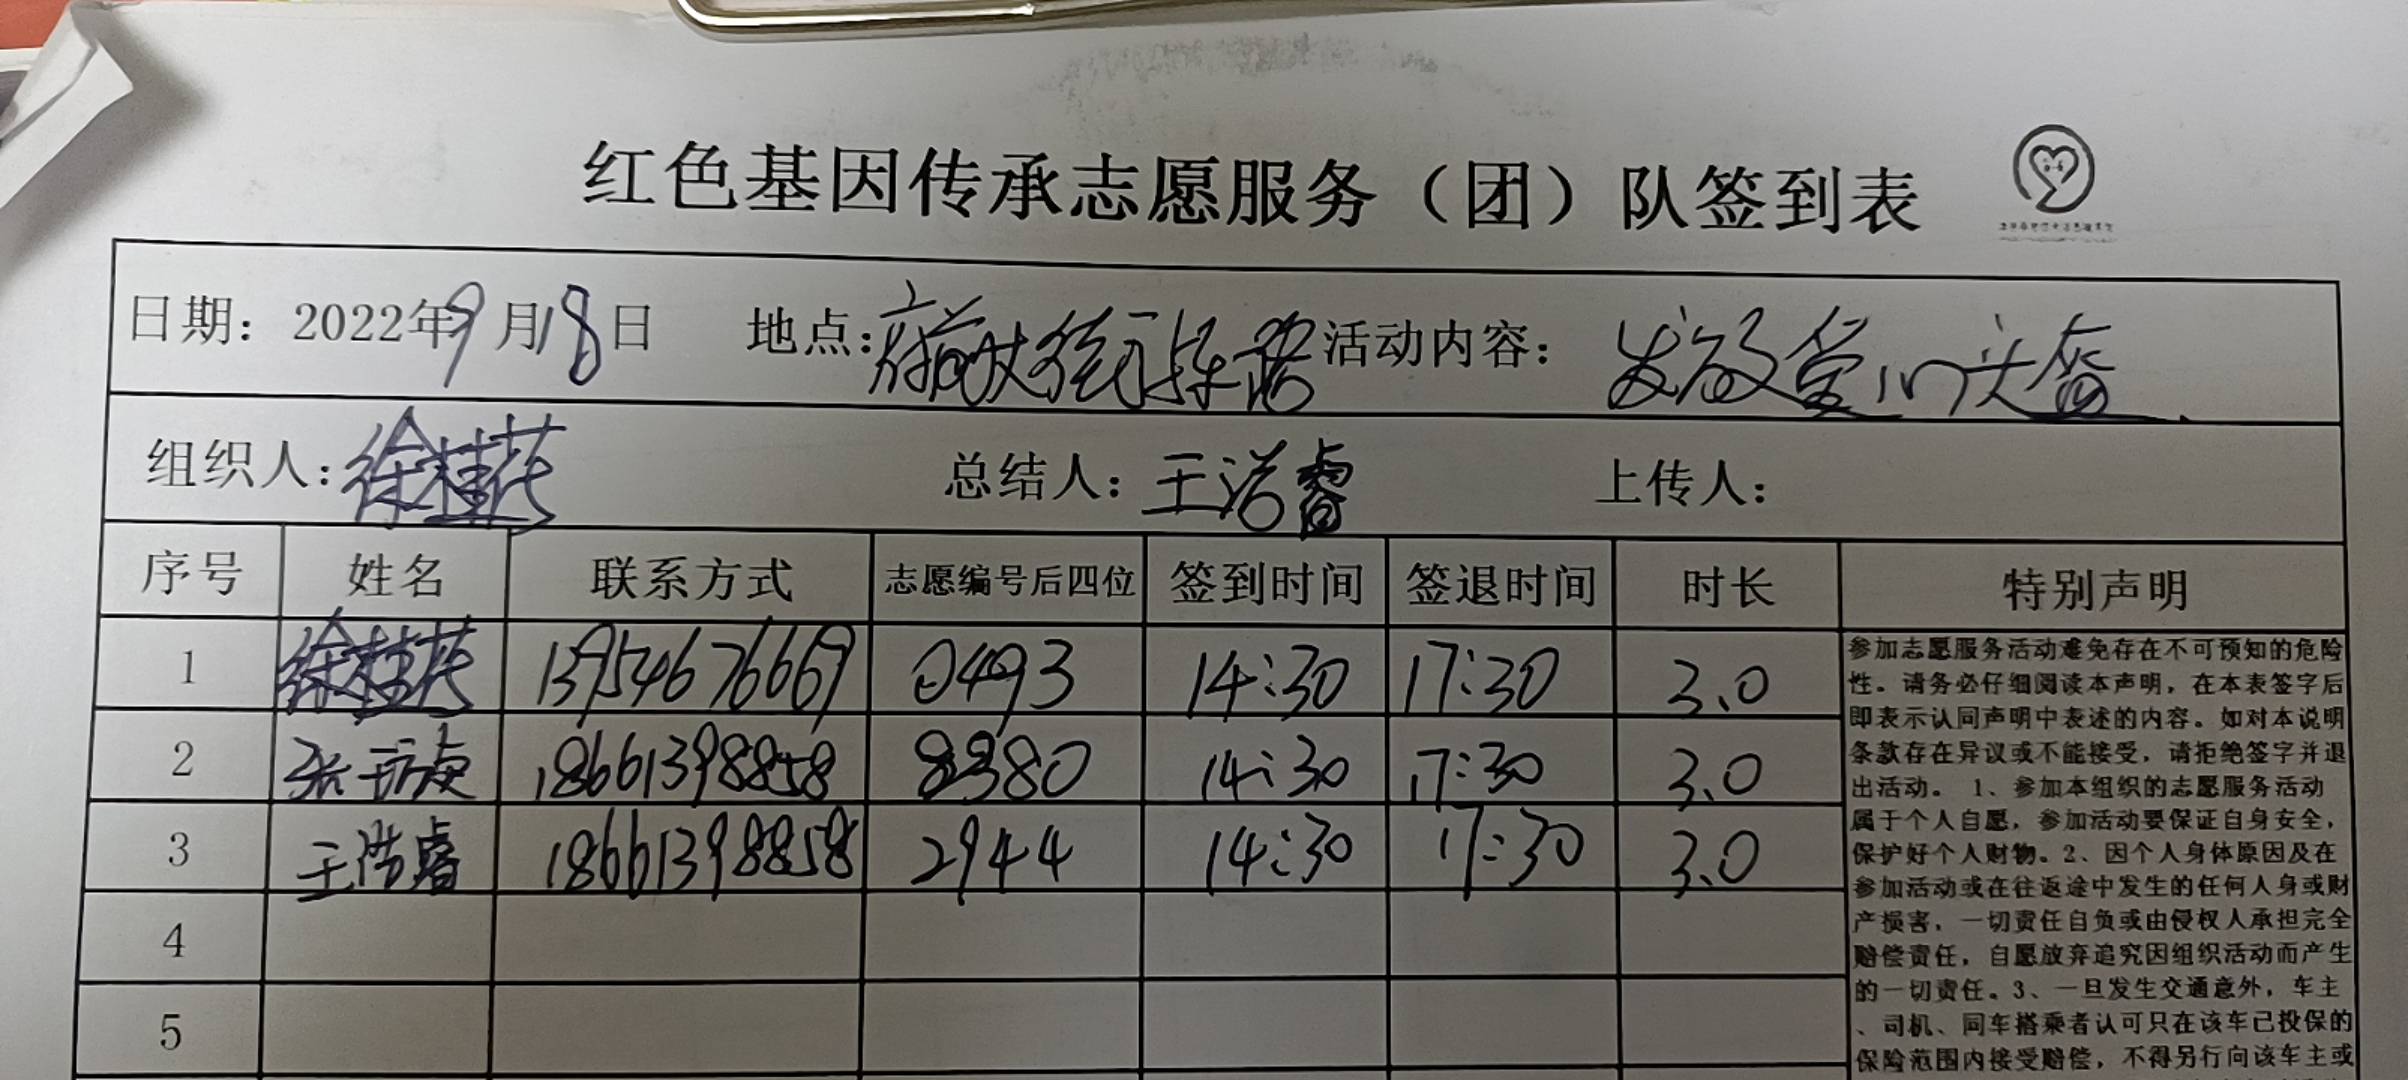 红色基因传承志愿服务（团）队签到表
日期：2022年9月18日 地点： 活动内容：发放 头盔
组织人：徐桂 总结人：王浩睿 上传人：
序号 姓名 联系方式 志愿编号后四位 签到时间 签退时间 时长 特别声明
1 徐桂 13954676669 0493 14:30 17:30 3.0
2 张 18661398858 8380 14:30 17:30 3.0
3 王浩睿 18661398858 2944 14:30 17:30 3.0
4
5
参加志愿服务活动难免存在不可预知的危险
性。请务必仔细阅读本声明，在本表签字后
即表示认同声明中表述的内容。如对本说明
条款存在异议或不能接受，请拒绝签字并退
出活动。 1、参加本组织的志愿服务活动
属于个人自愿，参加活动要保证自身安全，
保护好个人财物。2、因个人身体原因及在
参加活动或在往返途中发生的任何人身或财
产损害，一切责任自负或由侵权人承担完全
赔偿责任，自愿放弃追究因组织活动而产生
的一切责任。3、一旦发生交通意外，车主
、司机、同车搭乘者认可只在该车已投保的
保险范围内接受赔偿，不得另行向该车主或